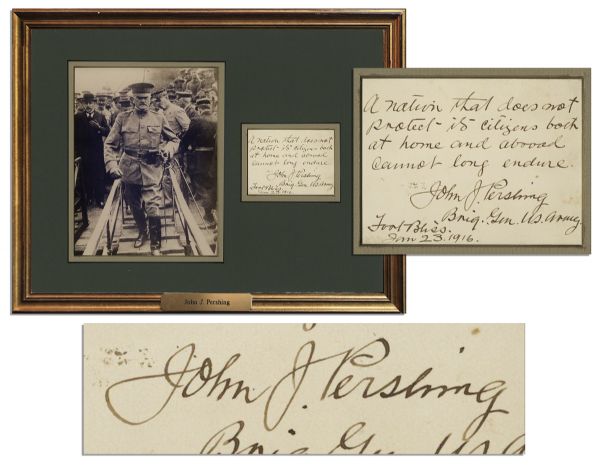 A nation that does not
protect its citizens both
at home and abroad
cannot long endure
John J. Pershing
Brig. Gen. US. Army
Fort Bliss.
Jan 23. 1916.
John J. Pershing
A nation that does not
protect its citizens both
at home and abroad
cannot long endure.
John J. Pershing
Brig. Gen. US. Army
Fort Bliss.
Jan 23. 1916.
John J. Pershing
Brig Gen US A